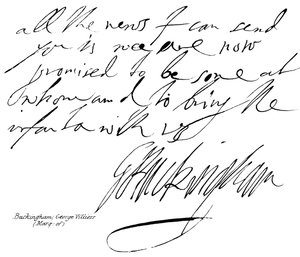 all the news I can send
you is we are now
promised to be sone at
whome and to bring the
infanta with us
G Buckingham
Buckingham; George Villiers
(Marq. of)